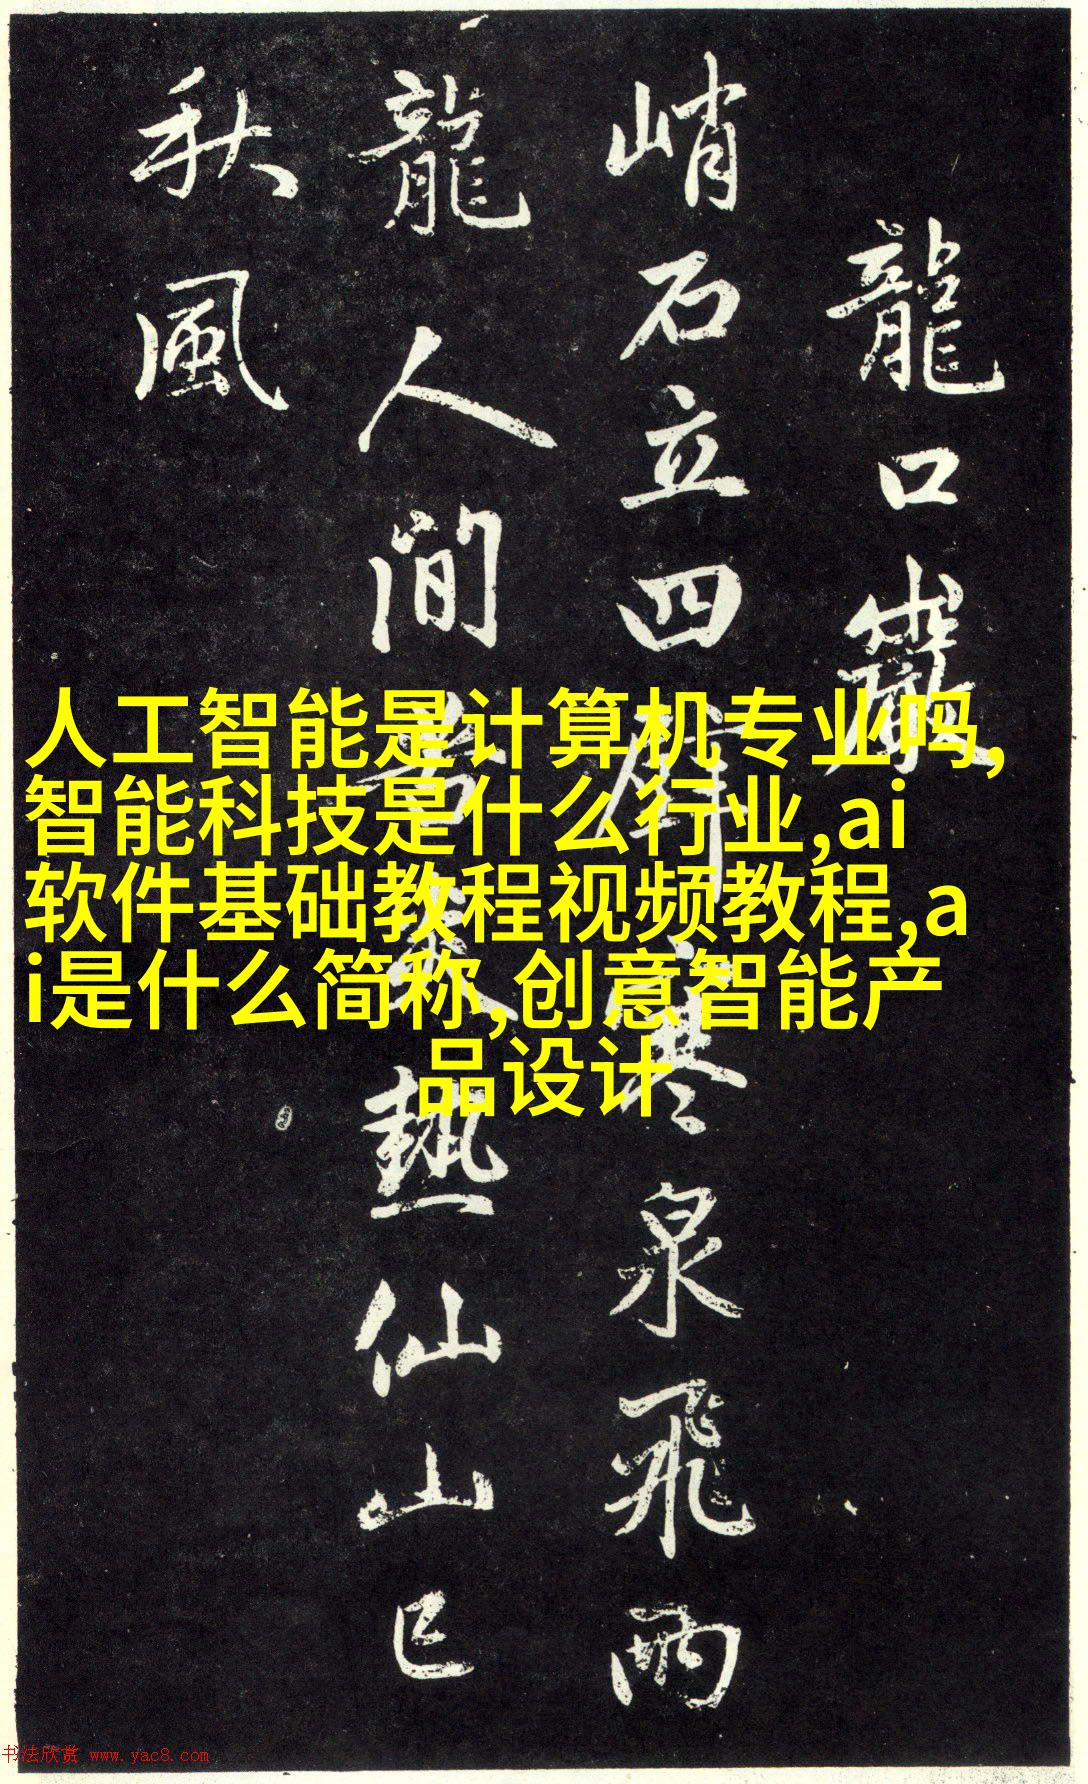 龍口
峭石立四壁寒泉飛兩
龍人間苦炎熱仙山已
秋風
人工智能是计算机专业吗,
智能科技是什么行业,ai
软件基础教程视频教程,a
i是什么简称,创意智能产
品设计
书法欣赏 www.yac8.com